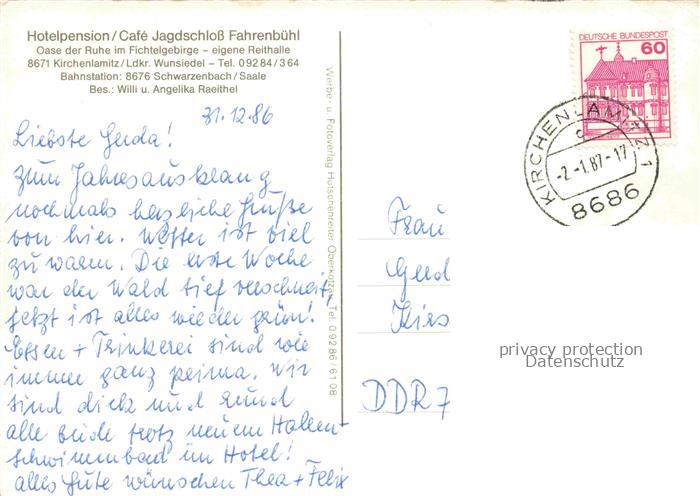 Hotelpension/Café Jagdschloß Fahrenbühl
Oase der Ruhe im Fichtelgebirge – eigene Reithalle
8671 Kirchenlamitz/Ldkr. Wunsiedel – Tel. 0 92 84/3 64
Bahnstation: 8676 Schwarzenbach/Saale
Bes.: Willi u. Angelika Raeithel
31.12.86
Liebste Gerda!
Zum Jahresausklang
nochmals herzliche Grüße
von hier. Wetter ist viel
zu warm. Die erste Woche
war der Wald tief verschneit,
jetzt ist alles wieder grün!
Essen + Trinkerei sind wie
immer ganz prima. Wir
sind dick und rund
alle beide trotz neuem Hallen-
schwimmbad im Hotel!
Alles Gute wünschen Thea + Felix
Werbe- u. Fotoverlag Hutschenreiter Oberkotzau Tel. 0 92 86/61 08
DEUTSCHE BUNDESPOST
60
KIRCHENLAMITZ 1
c
-2.-1.87-17
8686
Frau
Gerd
Kirs
DDR 7
privacy protection
Datenschutz